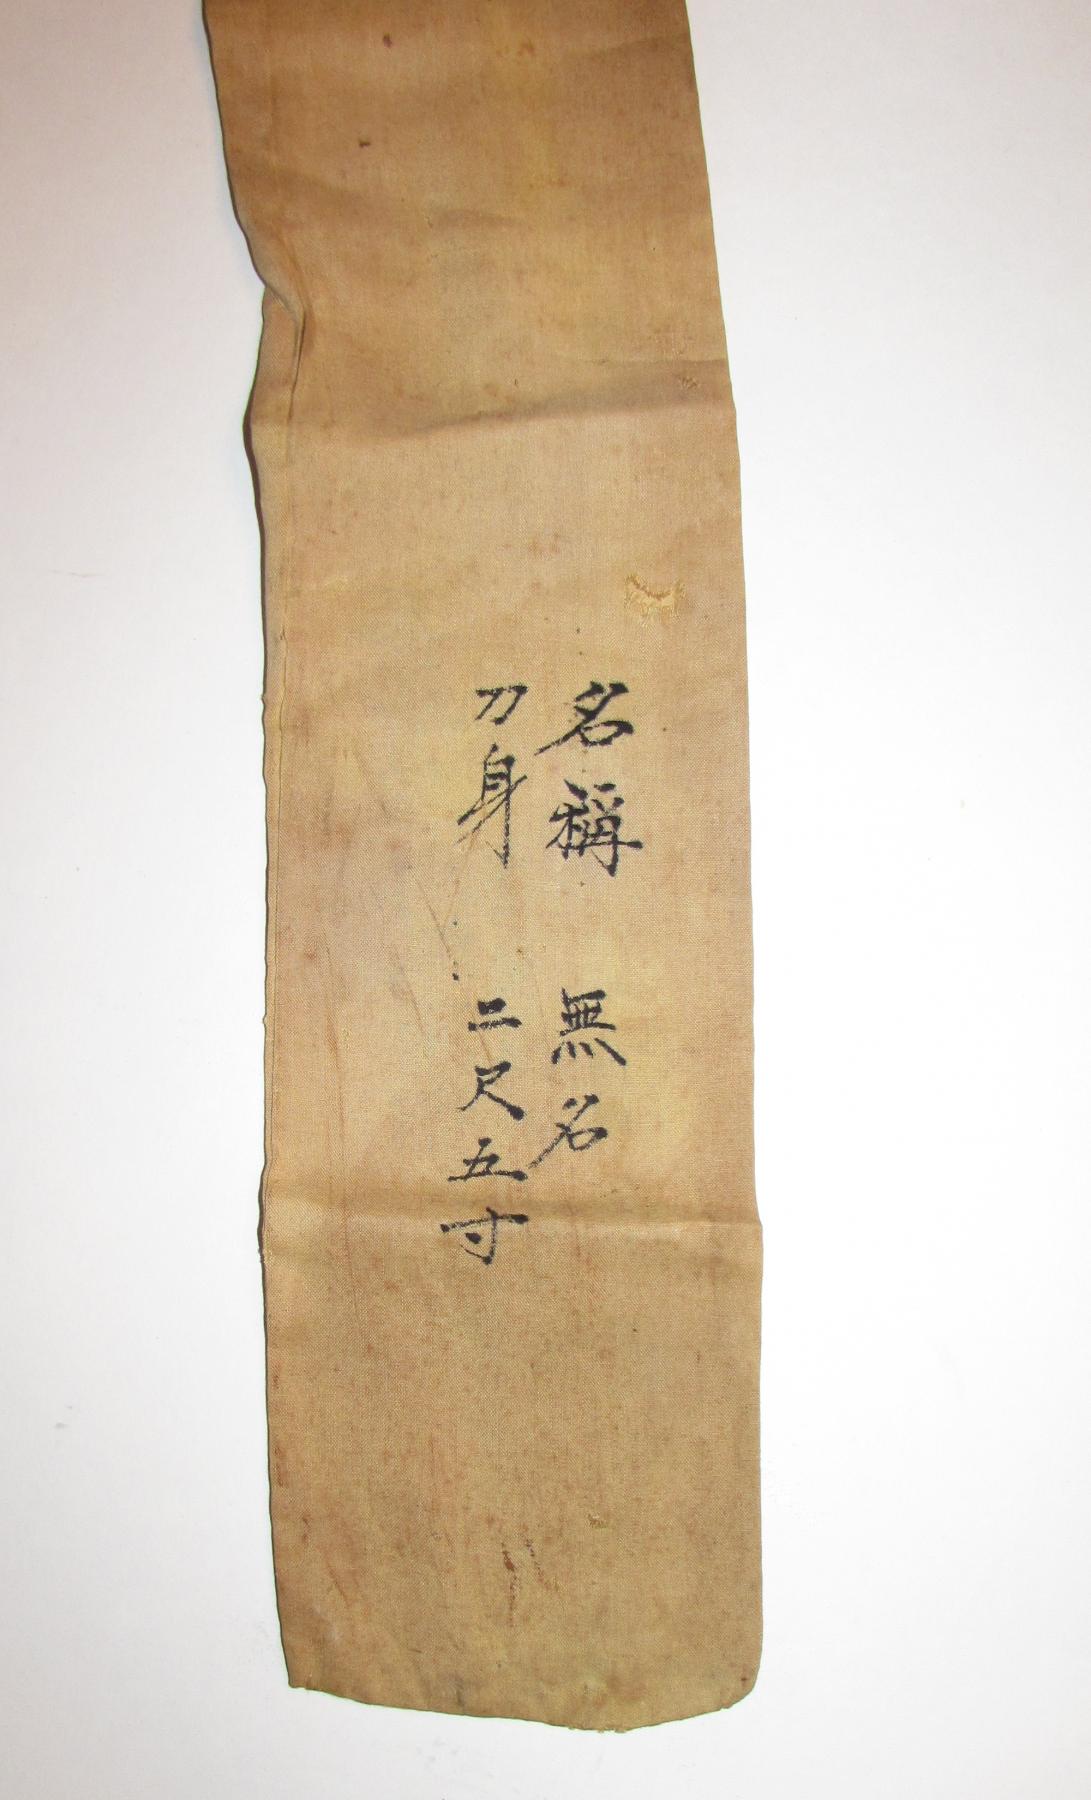 名稱 無名
刀身 二尺五寸